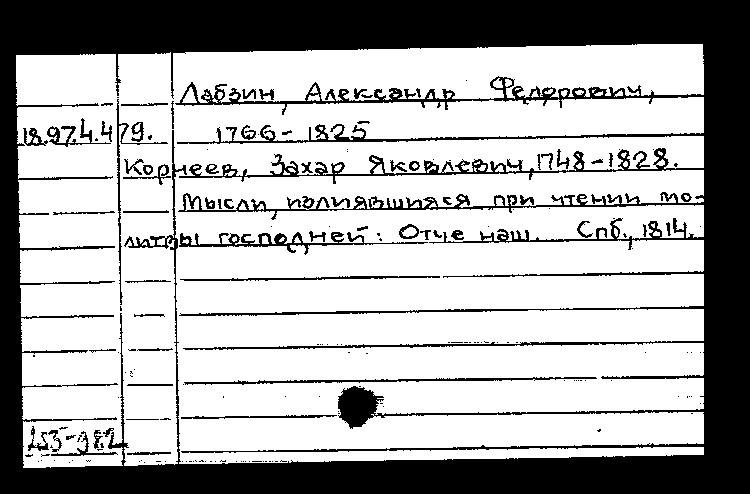 Лабзин, Александр Федорович,
18.97.4.479. 1766-1825
Корнеев, Захар Яковлевич, 1748-1828.
Мысли, излиявшияся при чтении мо-
литвы господней: Отче наш. Спб., 1814.
253-982